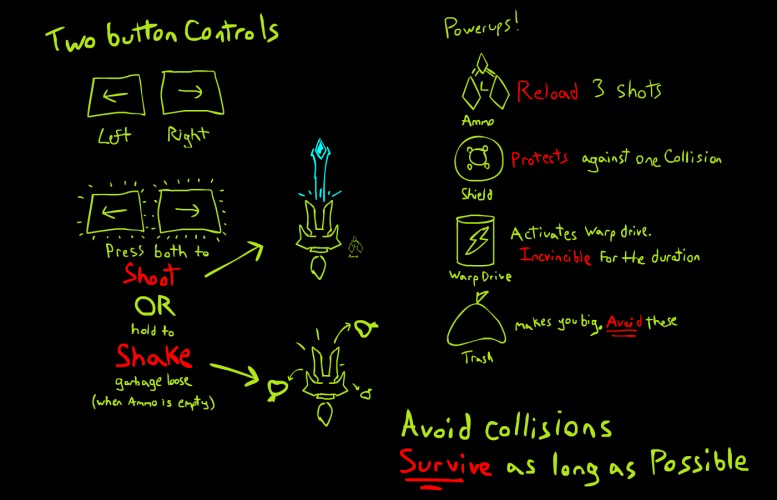 Two button Controls
Left
Right
Press both to
Shoot
OR
hold to
Shake
garbage loose
(when Ammo is empty)
Powerups!
Ammo
Reload 3 shots
Shield
Protects against one Collision
Warp Drive
Activates Warp drive.
Incvincible for the duration
Trash
makes you big. Avoid these
Avoid collisions
Survive as long as Possible